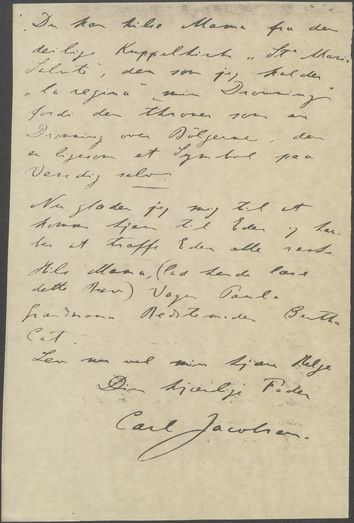 Du kan hilse Mama fra den
deilige Kuppelkirke „Sta Maria
Salute", den som jeg kalder
„la regina" min Dronning
fordi den throner som en
Dronning over Bölgerne, den
er ligesom et Symbol paa
Venedig selv.
Nu glæder jeg mig til at
komme hjem til Eder og haa-
ber at træffe Eder alle raske
Hils Mama, (lad hende læse
dette Brev) Vagn Paula
Grandmama Bedstemoder Bertha
Cat.
Lev nu vel min kjære Helge
Din kjærlige Fader
Carl Jacobsen.